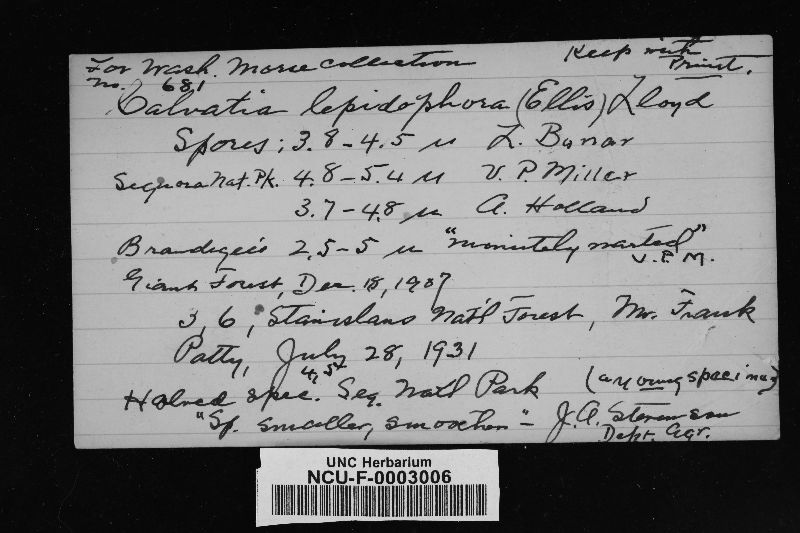 For Wash. Morse collection Keep with Print.
No. 681
Calvatia lepidophora (Ellis) Lloyd
Spores; 3.8-4.5 µ L. Bonar
Sequoia Nat. Pk. 4.8-5.4 µ V. P. Miller
3.7-4.8 µ A. Holland
Brandegee's 2.5-5 µ "minutely warted" V. P. M.
Giant Forest, Dec. 18, 1907
3, 6, Stanislaus Nat'l Forest, Mr. Frank
Patty, July 28, 1931
4, 5,
Halved spec. Seq. Nat'l Park (a young specimen)
"Sp. smaller, smoother" - J. A. Stevenson
Dept. Agr.
UNC Herbarium
NCU-F-0003006